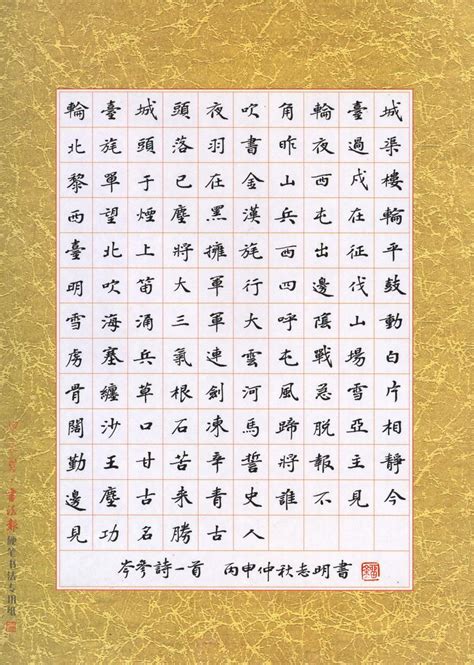 輪臺城頭夜吹角輪臺城
北旄頭落羽書昨夜過渠
黎單于已在金山西戍樓
西望煙塵黑漢兵屯在輪
臺北上將擁旄西出征平
明吹笛大軍行四邊伐鼓
雪海涌三軍大呼隂山動
虜塞兵氣連雲屯戰場白
骨纏草根劍河風急雪片
闊沙口石凍馬蹄脫亞相
勤王甘苦辛誓將報主靜
邊塵古來青史誰不見今
見功名勝古人
岑參詩一首 丙申仲秋志明書
書法報硬笔书法专用纸